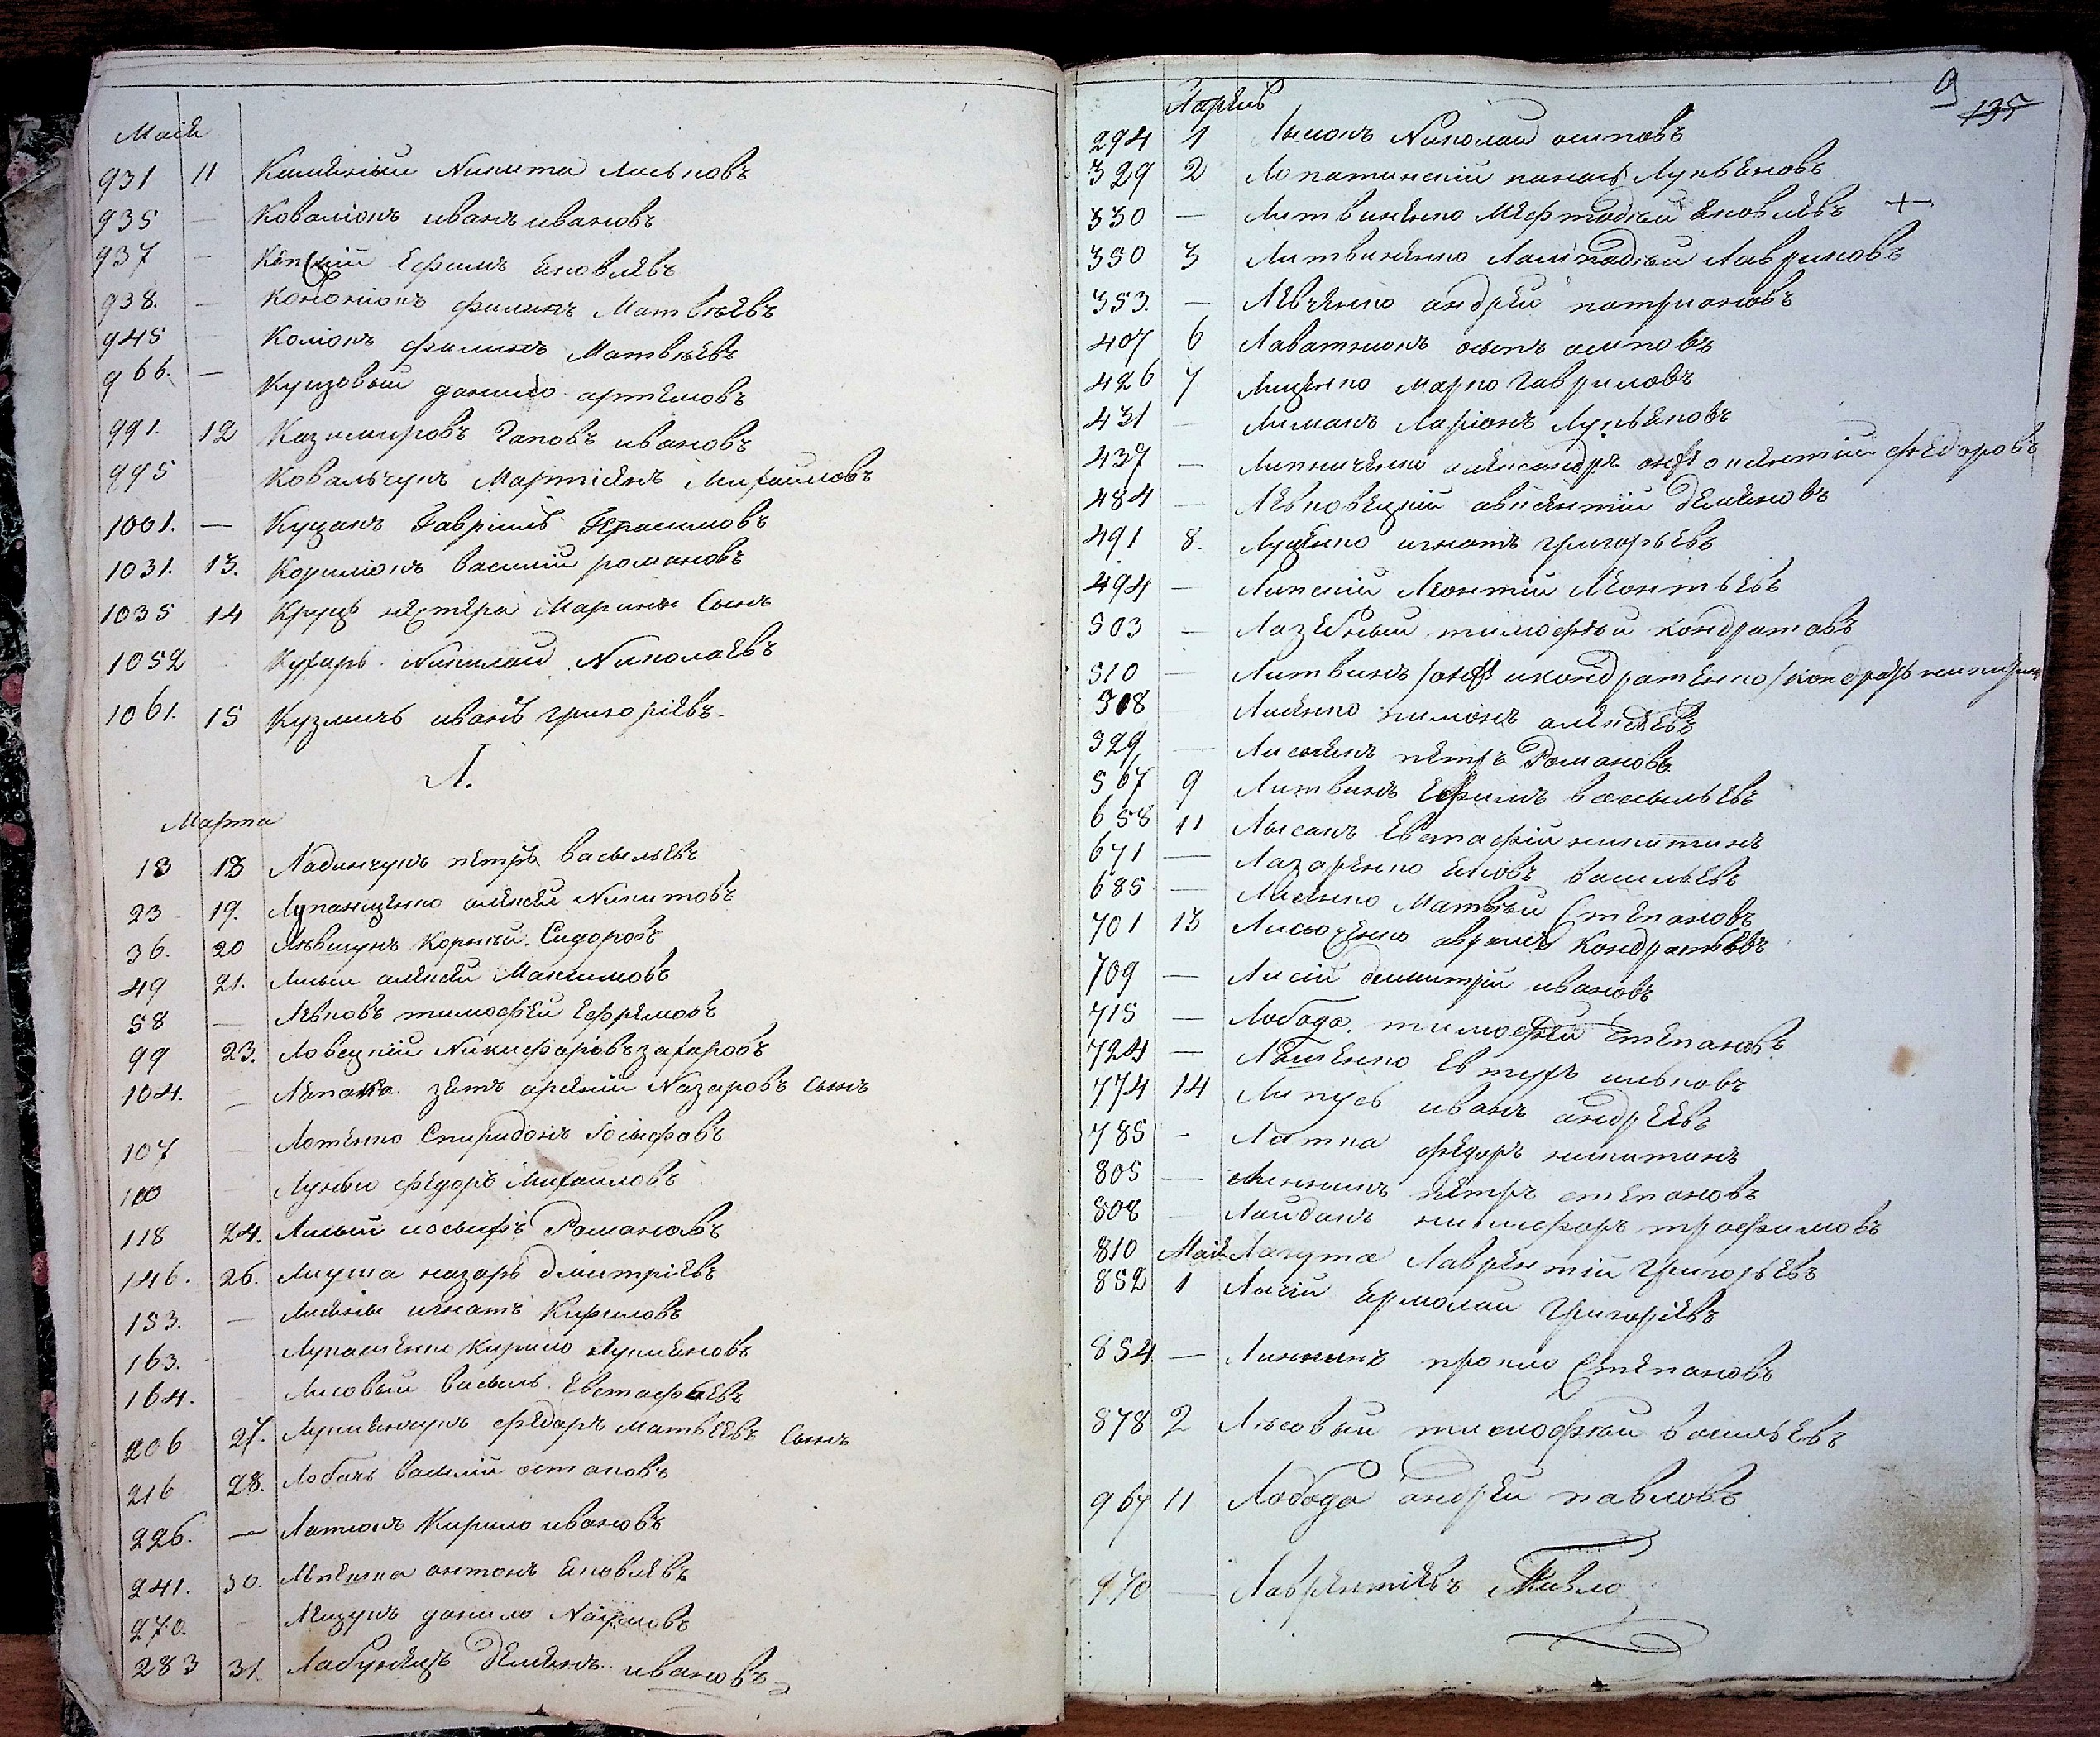 Маія
931 11 Калѣкный Никита Ласьковъ
935 — Ковалюкъ иванъ ивановъ
937 — Ефимъ Яковлевъ
938. — Кононюкъ филипъ Матвѣевъ
945 Колюкъ филипъ Матвѣевъ
966. — Кунзовый данило артемовъ
991. 12 Казимировъ Яковъ ивановъ
995 Ковальчукъ Мартіянъ Михаиловъ
1001. — Куцакъ Гавріилъ Герасимовъ
1031. 13. Корилюкъ василій романовъ
1035 14 Круць нестера Марины Сынъ
1052 Кухарь Николай Николаевъ
1061. 15 Кузмичь иванъ григоріевъ.
Л.
Марта
13 18 Ладинчукъ петръ васильевъ
23 19. Лупанщенко алексей Никитовъ
36. 20 Лѣвшунъ Корнѣй Сидоровъ
49 21. Лисый алексей Максимовъ
58 — Левковъ тимофей Ефремовъ
99 23. Ловецкій Никифаръ захаровъ
104. — Лепака зять арсеній Назаровъ сынъ
107 — Лотенко Спиридонъ Іосыфовъ
110 Лукъы федоръ Михаиловъ
118 24. Лисый иосыфъ Романовъ
146. 26. Лауша назаръ дмитріевъ
153. — игнатъ Кириловъ
163. Лукашенко Кирило Лукіяновъ
164. Лисовый василь Евстафьевъ
206 27. Лукіянчукъ федоръ Матвеевъ Сынъ
216 28. Лобачь василій остаповъ
226. — Латюкъ Кирило ивановъ
241. 30. Лепешка антонъ Яковлевъ
270. Лещукъ данило Наумовъ
283 31. Лабунецъ Демянъ ивановъ
9
135
Апрель
294 1 Лысюкъ Николай осиповъ
329 2 Лопатинскій панасъ Лукьяновъ
330 — Литвиненко Мефтодѣй Яковлевъ +
350 3 Литвиненко Лампадѣй Лавриновъ
353. — Левченко андрей патрикановъ
407 6 Лаватнюкъ осыпъ осиповъ
426 7 Лищенко марко Гавриловъ
431 Лиманъ Ларіонъ Лукьяновъ
437 — Липниченко александръ онже оксентій федоровъ
484 — Левковецкій авксентій Демяновъ
491 8. Луценко игнатъ григорьевъ
494 — Липскій Леонтій Леонтьевъ
503 — Лазебный тимофѣй кондратовъ
510 — Литвинъ /онже икондратенко/ кондратъ
508 Лисенко пимонъ алексеевъ
529 — петръ Романовъ
567 9 Литвинъ Ефимъ васыльевъ
658 11 Лысакъ Евстафій никитинъ
671 — Лазаренко Яковъ васильевъ
685 — Лисенко Матвѣй Степановъ
701 13 аврамъ Кондратьевъ
709 — Лисій дмитрій ивановъ
715 — Лобода тимофѣй степановъ
724 — Ляшенко Евтухъ ильковъ
774 14 Липусь иванъ андреевъ
785 - Латка федоръ никитинъ
805 — петръ степановъ
808 Лайданъ никифоръ трофимовъ
810 Маія Лагута Лаврентій Григорьевъ
852 1 Лисій Ермолай Григоріевъ
854 — Линникъ прокло Степановъ
878 2 Лѣсовый тимофѣй васильевъ
967 11 Лобода андрей павловъ
970 — Лаврентіевъ Павло